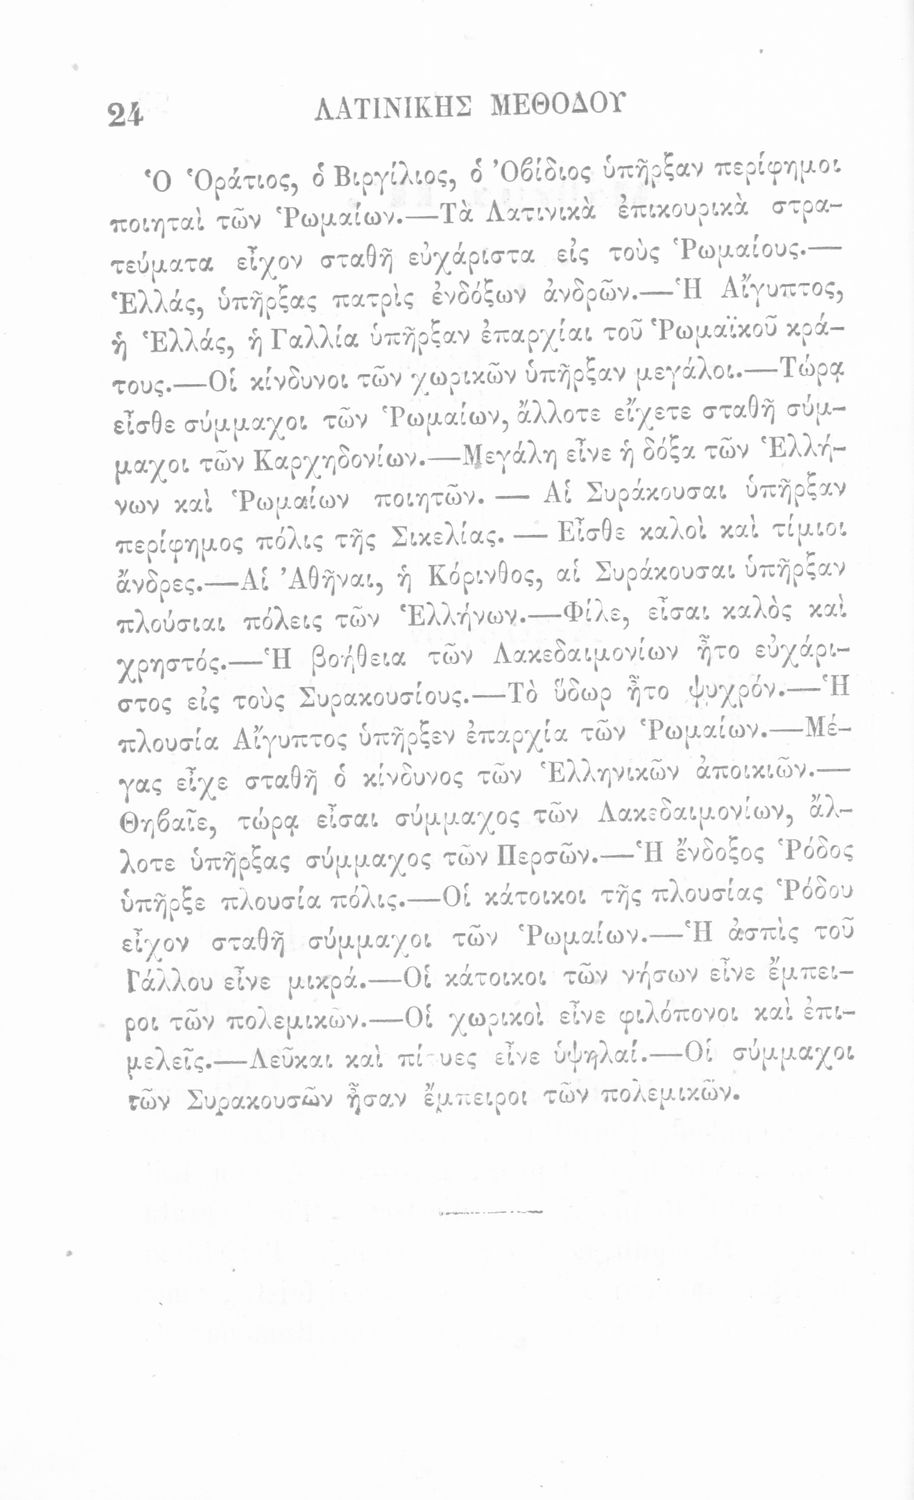 24 ΛΑΤΙΝΙΚΗΣ ΜΕΘΟΔΟΥ
Ὁ Ὁράτιος, ὁ Βιργίλιος, ὁ Ὀβίδιος ὑπῆρξαν περίφημοι
ποιηταὶ τῶν Ῥωμαίων.—Τὰ Λατινικὰ ἐπικουρικὰ στρα-
τεύματα εἶχον σταθῆ εὐχάριστα εἰς τοὺς Ῥωμαίους.—
Ἑλλάς, ὑπῆρξας πατρὶς ἐνδόξων ἀνδρῶν.—Ἡ Αἴγυπτος,
ἡ Ἑλλάς, ἡ Γαλλία ὑπῆρξαν ἐπαρχίαι τοῦ Ῥωμαϊκοῦ κρά-
τους.—Οἱ κίνδυνοι τῶν χωρικῶν ὑπῆρξαν μεγάλοι.—Τώρα
εἶσθε σύμμαχοι τῶν Ῥωμαίων, ἄλλοτε εἴχετε σταθῆ σύμ-
μαχοι τῶν Καρχηδονίων.—Μεγάλη εἶνε ἡ δόξα τῶν Ἑλλή-
νων καὶ Ῥωμαίων ποιητῶν. — Αἱ Συράκουσαι ὑπῆρξαν
περίφημος πόλις τῆς Σικελίας. — Εἶσθε καλοὶ καὶ τίμιοι
ἄνδρες.—Αἱ Ἀθῆναι, ἡ Κόρινθος, αἱ Συράκουσαι ὑπῆρξαν
πλούσιαι πόλεις τῶν Ἑλλήνων.—Φίλε, εἶσαι καλὸς καὶ
χρηστός.—Ἡ βοήθεια τῶν Λακεδαιμονίων ἦτο εὐχάρι-
στος εἰς τοὺς Συρακουσίους.—Τὸ ὕδωρ ἦτο ψυχρόν.—Ἡ
πλουσία Αἴγυπτος ὑπῆρξεν ἐπαρχία τῶν Ῥωμαίων.—Μέ-
γας εἶχε σταθῆ ὁ κίνδυνος τῶν Ἑλληνικῶν ἀποικιῶν.—
Θηβαῖε, τώρᾳ εἶσαι σύμμαχος τῶν Λακεδαιμονίων, ἄλ-
λοτε ὑπῆρξας σύμμαχος τῶν Περσῶν.—Ἡ ἔνδοξος Ῥόδος
ὑπῆρξε πλουσία πόλις.—Οἱ κάτοικοι τῆς πλουσίας Ῥόδου
εἶχον σταθῆ σύμμαχοι τῶν Ῥωμαίων.—Ἡ ἀσπὶς τοῦ
Γάλλου εἶνε μικρά.—Οἱ κάτοικοι τῶν νήσων εἶνε ἔμπει-
ροι τῶν πολεμικῶν.—Οἱ χωρικοὶ εἶνε φιλόπονοι καὶ ἐπι-
μελεῖς.—Λεῦκαι καὶ πί υες εἶνε ὑψηλαί.—Οἱ σύμμαχοι
τῶν Συρακουσῶν ἦσαν ἔμπειροι τῶν πολεμικῶν.